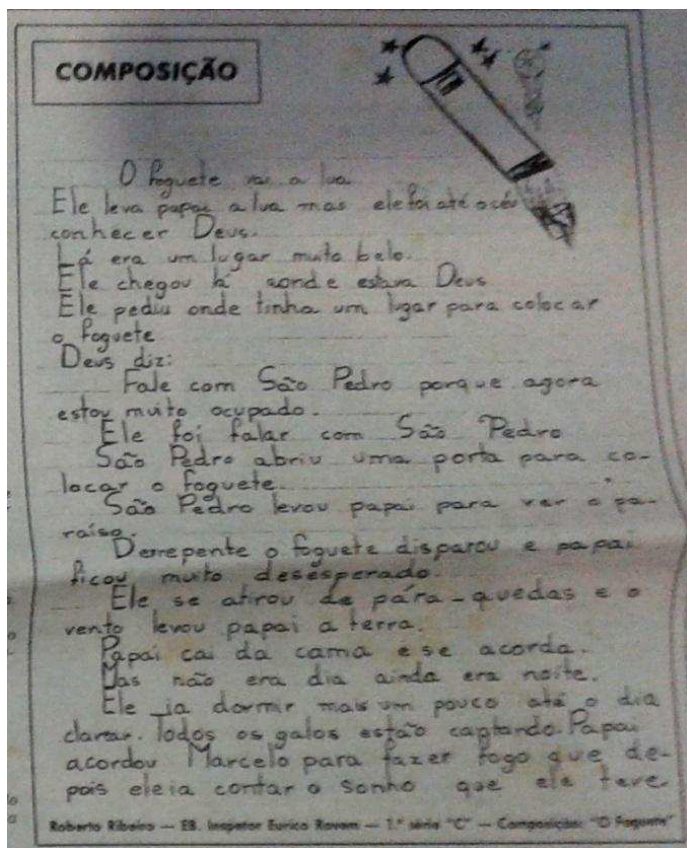 COMPOSIÇÃO
O foguete vai a lua
Ele leva papai a lua mas ele foi até o céu
conhecer Deus.
Lá era um lugar muito belo.
Ele chegou lá aonde estava Deus
Ele pediu onde tinha um lugar para colocar
o foguete
Deus diz:
Fale com São Pedro porque agora
estou muito ocupado.
Ele foi falar com São Pedro
São Pedro abriu uma porta para co-
locar o foguete.
São Pedro levou papai para ver o pa-
raíso.
Derrepente o foguete disparou e papai
ficou muito desesperado.
Ele se atirou de pára-quedas e o
vento levou papai a terra.
Papai cai da cama e se acorda.
Mas não era dia ainda era noite.
Ele ia dormir mais um pouco até o dia
clarear. Todos os galos estão cantando. Papai
acordou Marcelo para fazer fogo que de-
pois ele ia contar o sonho que ele teve
Roberto Ribeiro — EB. Inspetor Eurico Rovem — 1.ª série "C" — Composição: "O Foguete"